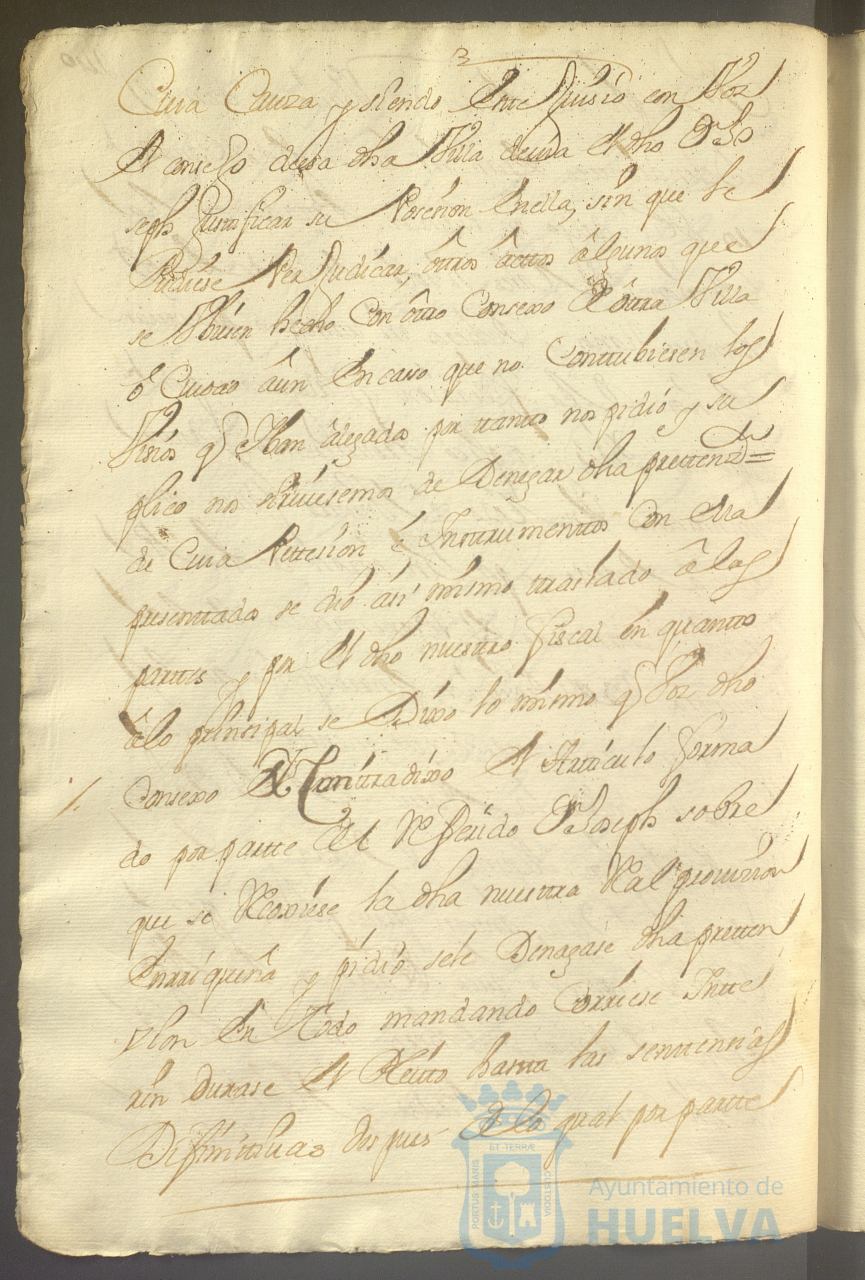 Cuia Cauza y siendo
el consejo de esa dha Villa devia el dho Dn Jo
seph Justificar su Posesion en ella, sin que le
Pudiese Perjudicar, otros actos algunos que
se Vbiesen hecho Con otro Consexo de otra Villa
o Ciudad aun en caso que no Contubiesen los
Visios q e Iban alegados por tanto nos pidio y su
plico nos sirviesemos de Denegar dha pretenzn =
de Cuia Pettesion e Instrumentos Con ella
presentados se dio asi mismo traslado a las
partes y por el dho nuestro fiscal en quanto
a lo prinsipal se Dixo lo mismo q Por dho
Consexo Contradixo el Articulo forma
do por parte del Referido Dn Joseph sobre
que se Recoxiese la dha nuestra Real provision
Enrriqueña y pidio sele Denegase dha preten
sion En Todo mandando Corriese Inte
rin Durase el Pleito hasta las sentensias
Difinitivas despues de lo qual por parte
PORTUS MARIS
ET TERRÆ
CUSTODIA
Ayuntamiento de
HUELVA